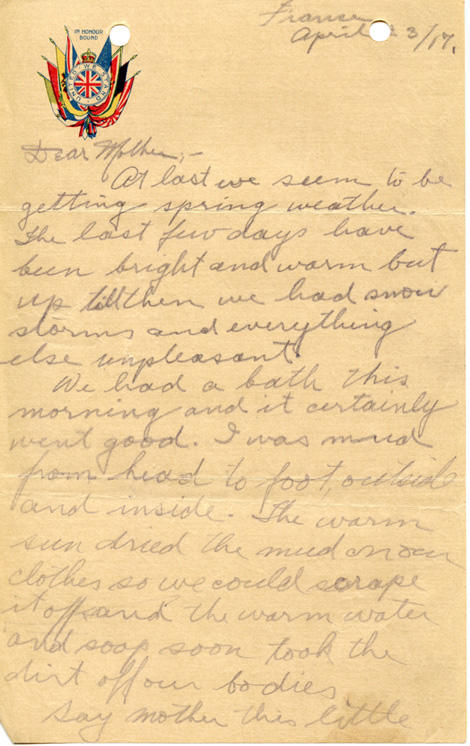 IN HONOUR
BOUND
UNITED WE STAND
France
April 23/17.
Dear Mother,-
At last we seem to be
getting spring weather.
The last few days have
been bright and warm but
up till then we had snow
storms and everything
else unpleasant.
We had a bath this
morning and it certainly
went good. I was mud
from head to foot, outside
and inside. The warm
sun dried the mud on our
clothes so we could scrape
it off and the warm water
and soap soon took the
dirt off our bodies
Say mother this little